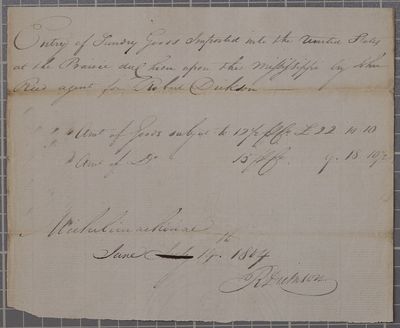 Entry of Sundry Goods Imported into the United States
at the Prairie du Chien upon the Mississippi by John
Reed agent for Robert Dickson
" Amt of Goods subject to 12½ pr Ct £ 22 10 10
" Amt of Do 15 pr Ct 9. 18. 10½
Michilimackinac
June 19th 1804
R Dickson